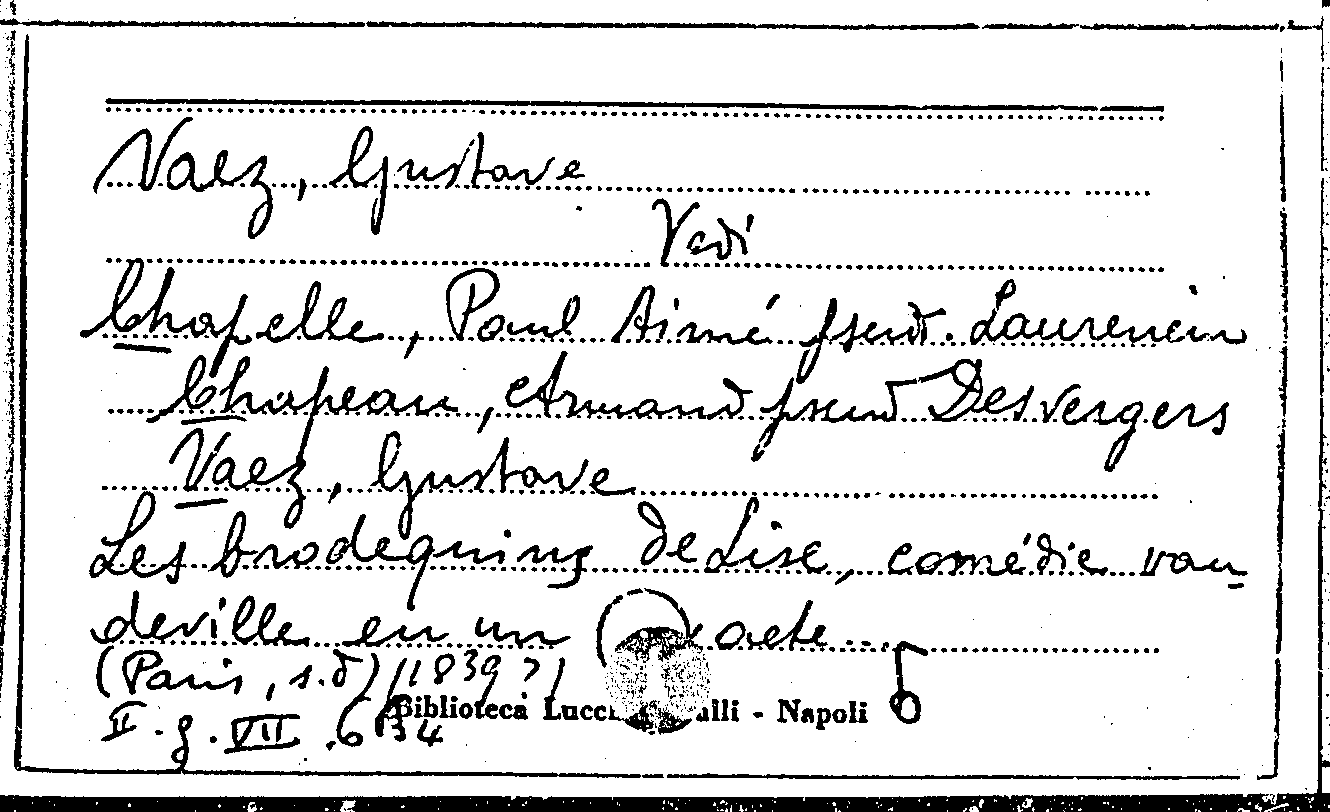 Vaez, Gustave
Vedi
Chapelle, Paul Aimé pseud. Laurencin
Chapeau, Armand pseud Desvergers
Vaez, Gustave
Les brodequins de Lise, comédie vau
deville en un acte...
(Paris, s.d) (1839?)
II.g.VII.6 34
Biblioteca - Napoli